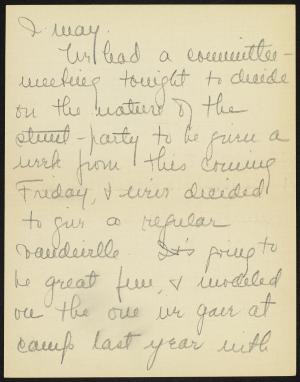 I may.
We had a committee-
meeting tonight to decide
on the nature of the
stunt-party to be given a
week from this coming
Friday, & we decided
to give a regular
vaudeville. It's going to
be great fun, & modeled
on the one we gave at
camp last year with